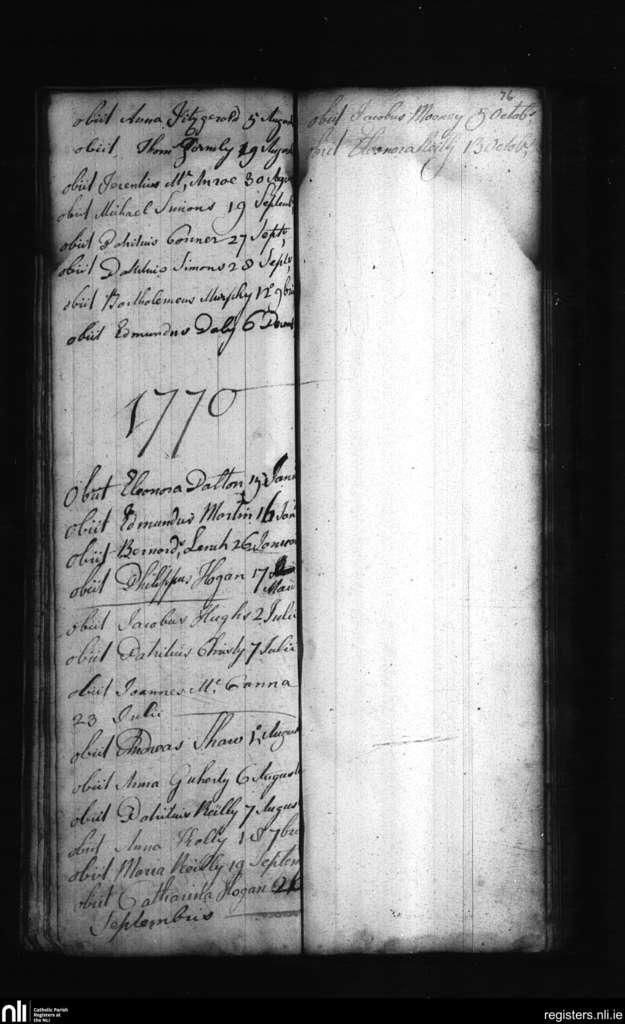 obiit Anna Fitzgerald 5 August
obiit Thom Gormly 29 August
obiit Terentius Mc Anroe 30 Augu
obiit Michael Simons 19 Septemb
obiit Patritius Conner 27 Septr,
obiit Patritius Simons 28 Septr,
obiit Bartholemeus Murphy 12 9bri
obiit Edmundus Daly 6 Decem
1770
Obiit Eleonora Dalton 15 Janu
obiit Edmundus Martin 16 Jan
obiit Bernardr, 26 Januar
obiit Philippus Hogan 17 Maii
obiit Jacobus Hughs 2 Julii
obiit Patritius Christy 7 Julii
obiit Joannes Mc Canna
23 Julii
obiit Andreas Shaw 1o, August
obiit Anna Guherty 6 August
obiit Patritius Reilly 7 Augus
obiit Anna 18 7br
obiit Maria Reilly 19 Septem
obiit Catharina Hogan
Septembris
76
obiit Jacobus Mooney 5 Octobr
obiit Eleonora Reilly 13 Octobr,
nli
Catholic Parish
Registers at
the NLI
registers.nli.ie